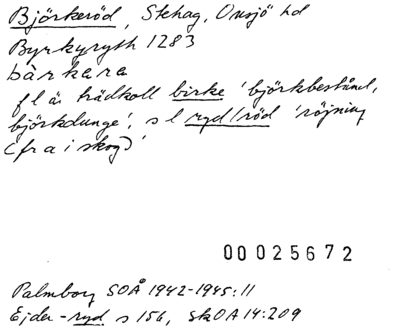 Björkeröd, Stehag, Onsjö hd
Byrkyryth 1283
bàrkara
fl ä. trädkoll birke 'björkbestånd,
björkdunge', s l ryd/röd 'röjning
(fra i skog)'
00025672
Palmborg SOÅ 1942-1945:11
Ejder-ryd s 156, SkOA 14:209